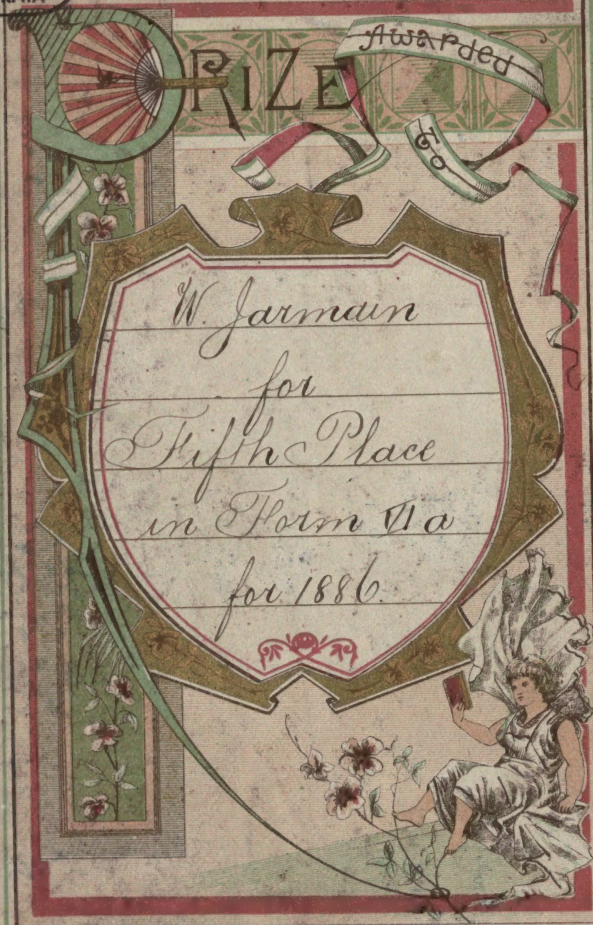 PRIZE
Awarded
To
W. Jarmain
for
Fifth Place
in Form VI a
for 1886.